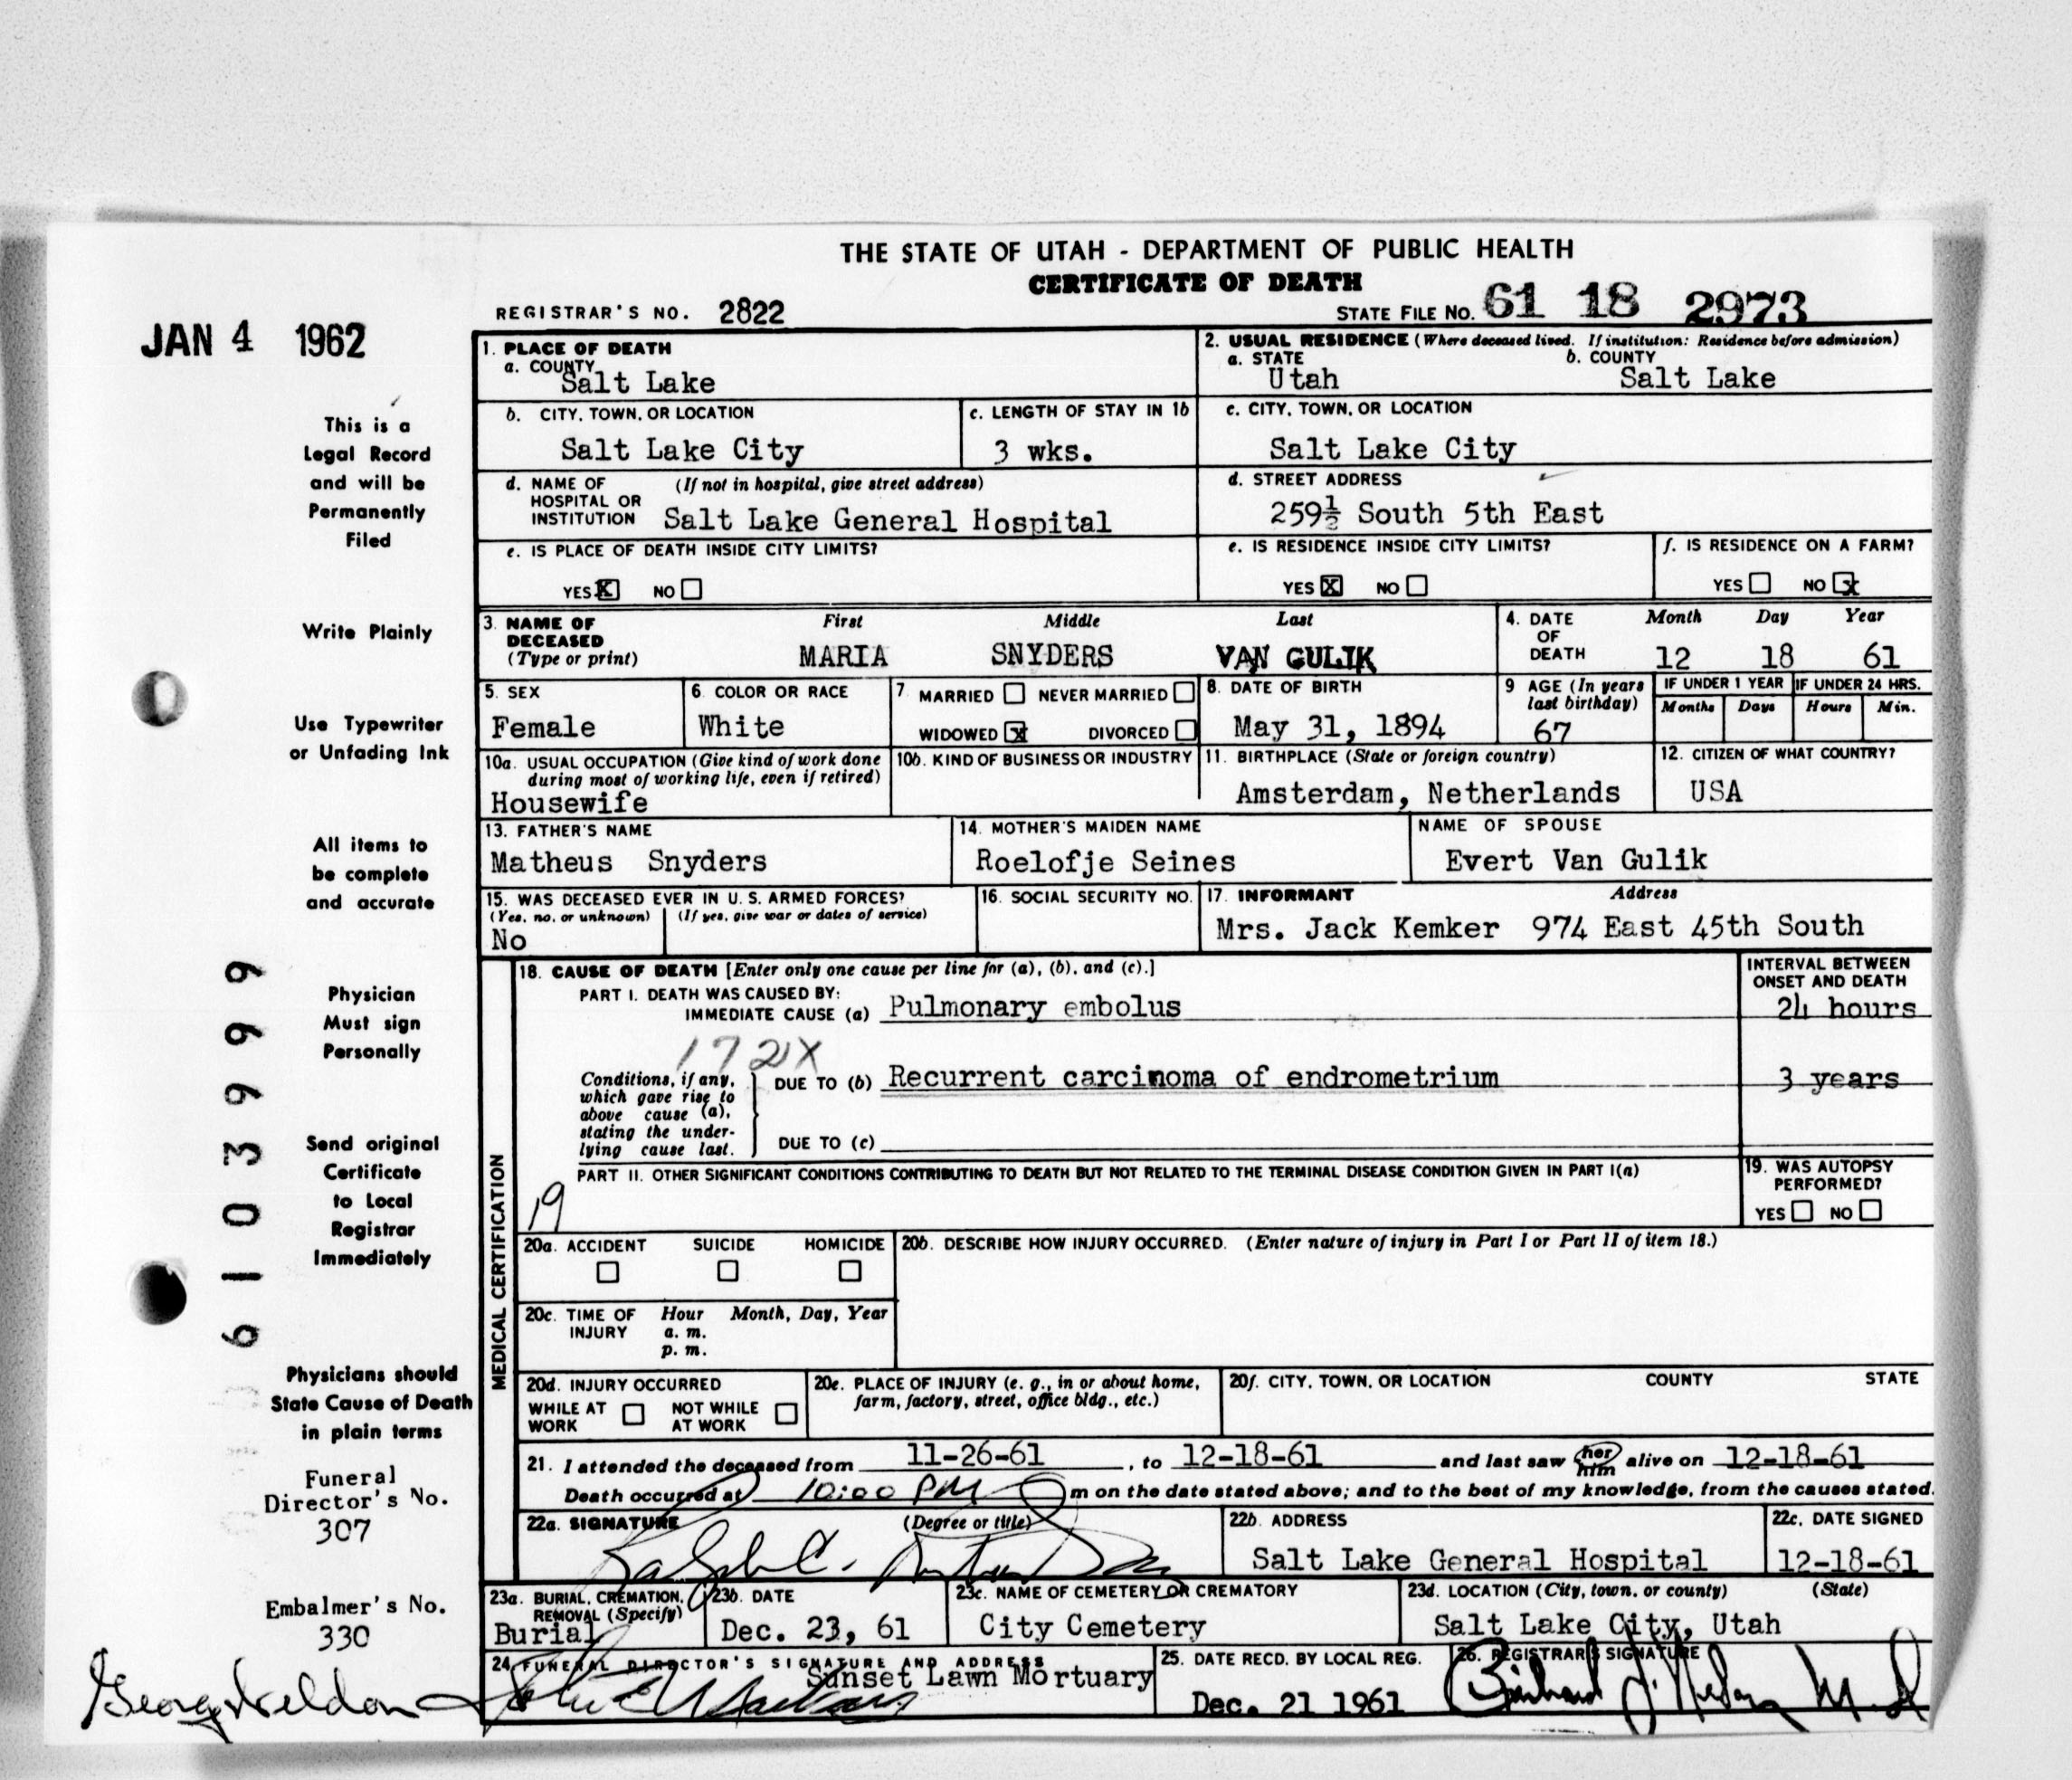 THE STATE OF UTAH - DEPARTMENT OF PUBLIC HEALTH
CERTIFICATE OF DEATH
REGISTRAR'S NO. 2822
STATE FILE NO. 61 18 2973
JAN 4 1962
This is a
Legal Record
and will be
Permanently
Filed
Write Plainly
Use Typewriter
or Unfading Ink
All items to
be complete
and accurate
Physician
Must sign
Personally
Send original
Certificate
to Local
Registrar
Immediately
Physicians should
State Cause of Death
in plain terms
Funeral
Director's No.
307
Embalmer's No.
330
6103999
1. PLACE OF DEATH
a. COUNTY
Salt Lake
2. USUAL RESIDENCE (Where deceased lived. If institution: Residence before admission)
a. STATE b. COUNTY
Utah Salt Lake
b. CITY, TOWN, OR LOCATION
Salt Lake City
c. LENGTH OF STAY IN 1b
3 wks.
c. CITY, TOWN, OR LOCATION
Salt Lake City
d. NAME OF (If not in hospital, give street address)
HOSPITAL OR
INSTITUTION Salt Lake General Hospital
d. STREET ADDRESS
259½ South 5th East
e. IS PLACE OF DEATH INSIDE CITY LIMITS?
YES X NO
e. IS RESIDENCE INSIDE CITY LIMITS?
YES X NO
f. IS RESIDENCE ON A FARM?
YES NO X
3. NAME OF
DECEASED
(Type or print)
First Middle Last
MARIA SNYDERS VAN GULIK
4. DATE
OF
DEATH
Month Day Year
12 18 61
5. SEX
Female
6. COLOR OR RACE
White
7. MARRIED NEVER MARRIED
WIDOWED X DIVORCED
8. DATE OF BIRTH
May 31, 1894
9 AGE (In years
last birthday)
67
IF UNDER 1 YEAR IF UNDER 24 HRS.
Months Days Hours Min.
10a. USUAL OCCUPATION (Give kind of work done
during most of working life, even if retired)
Housewife
10b. KIND OF BUSINESS OR INDUSTRY
11. BIRTHPLACE (State or foreign country)
Amsterdam, Netherlands
12. CITIZEN OF WHAT COUNTRY?
USA
13. FATHER'S NAME
Matheus Snyders
14. MOTHER'S MAIDEN NAME
Roelofje Seines
NAME OF SPOUSE
Evert Van Gulik
15. WAS DECEASED EVER IN U. S. ARMED FORCES?
(Yes, no, or unknown) (If yes, give war or dates of service)
No
16. SOCIAL SECURITY NO.
17. INFORMANT Address
Mrs. Jack Kemker 974 East 45th South
MEDICAL CERTIFICATION
18. CAUSE OF DEATH [Enter only one cause per line for (a), (b), and (c).]
PART I. DEATH WAS CAUSED BY:
IMMEDIATE CAUSE (a) Pulmonary embolus
INTERVAL BETWEEN
ONSET AND DEATH
24 hours
172X
Conditions, if any,
which gave rise to
above cause (a),
stating the under-
lying cause last.
DUE TO (b) Recurrent carcinoma of endrometrium
3 years
DUE TO (c)
PART II. OTHER SIGNIFICANT CONDITIONS CONTRIBUTING TO DEATH BUT NOT RELATED TO THE TERMINAL DISEASE CONDITION GIVEN IN PART I(a)
19
19. WAS AUTOPSY
PERFORMED?
YES NO
20a. ACCIDENT SUICIDE HOMICIDE
20b. DESCRIBE HOW INJURY OCCURRED. (Enter nature of injury in Part I or Part II of item 18.)
20c. TIME OF Hour Month, Day, Year
INJURY a. m.
p. m.
20d. INJURY OCCURRED
WHILE AT NOT WHILE
WORK AT WORK
20e. PLACE OF INJURY (e. g., in or about home,
farm, factory, street, office bldg., etc.)
20f. CITY, TOWN, OR LOCATION COUNTY STATE
21. I attended the deceased from 11-26-61, to 12-18-61 and last saw her him alive on 12-18-61
Death occurred at 10:00 PM m on the date stated above; and to the best of my knowledge, from the causes stated.
22a. SIGNATURE (Degree or title)
Ralph C.
22b. ADDRESS
Salt Lake General Hospital
22c. DATE SIGNED
12-18-61
23a. BURIAL, CREMATION,
REMOVAL (Specify)
Burial
23b. DATE
Dec. 23, 61
23c. NAME OF CEMETERY OR CREMATORY
City Cemetery
23d. LOCATION (City, town, or county) (State)
Salt Lake City, Utah
24. FUNERAL DIRECTOR'S SIGNATURE AND ADDRESS
Sunset Lawn Mortuary
George Weldon
25. DATE RECD. BY LOCAL REG.
Dec. 21 1961
26. REGISTRAR'S SIGNATURE